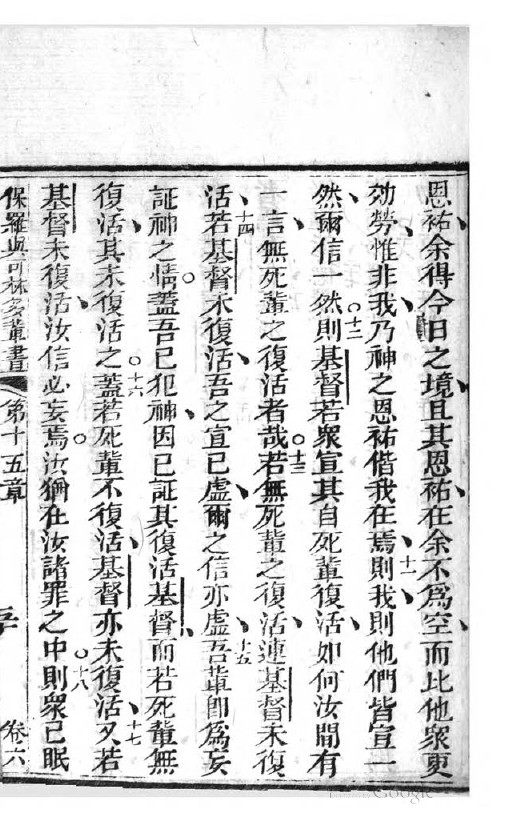 恩祐余得今日之境且其恩祐在余不爲空而比他衆更
効勞惟非我乃神之恩祐偕我在焉十一則我則他們皆宣一
然爾信一然十二則基督若衆宣其自死輩復活如何汝間有
一言無死輩之復活者哉十三若無死輩之復活連基督未復
活十四若基督未復活吾之宣已虛爾之信亦虛十五吾輩卽爲妄
証神之情蓋吾已犯神因已証其復活基督而若死輩無
復活其未復活之十六蓋若死輩不復活基督亦未復活十七又若
基督未復活汝信必妄焉汝猶在汝諸罪之中十八則衆已眠
保羅與可林多輩書 第十五章 卷六
Google